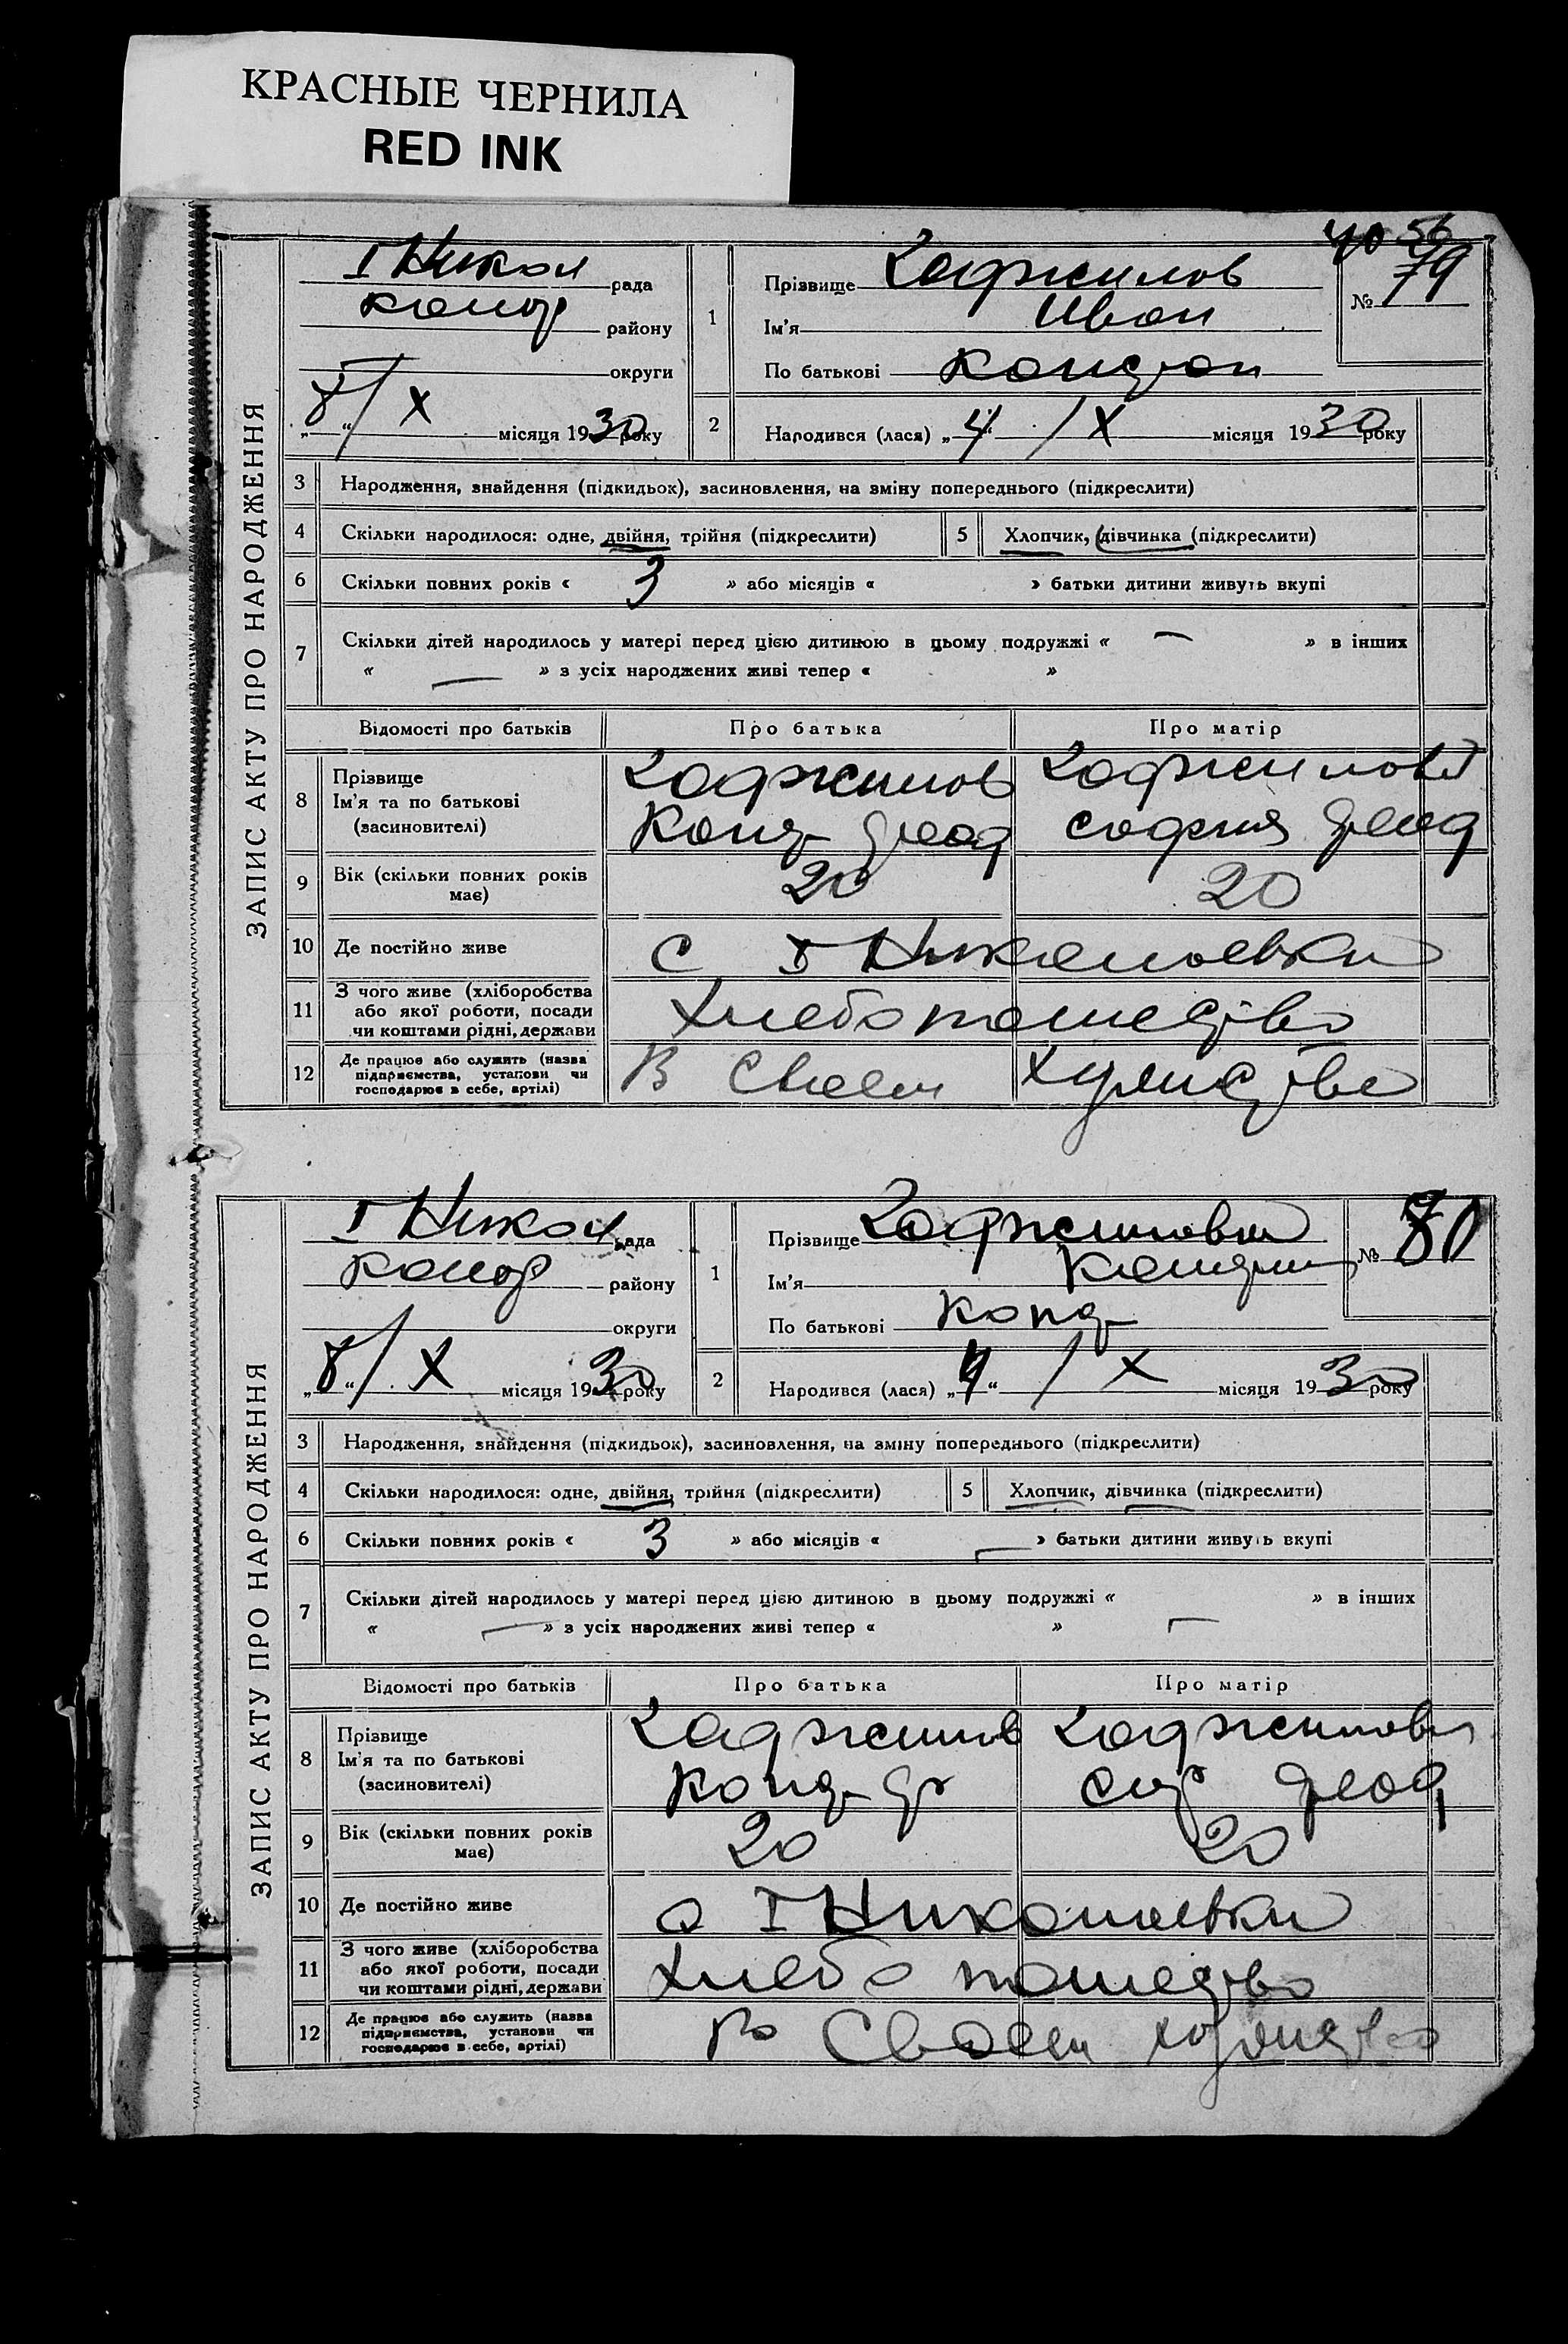 КРАСНЫЕ ЧЕРНИЛА
RED INK
56
ЗАПИС АКТУ ПРО НАРОДЖЕННЯ
I Никол рада
району
округи
„8“ / X місяця 1930 року
1
Прізвище Хаджинов
Ім'я Иван
По батькові
№ 79
2
Народився (лася) „4“ / X місяця 1930 року
3 Народження, знайдення (підкидьок), засиновлення, на зміну попереднього (підкреслити)
4 Скільки народилося: одне, двійня, трійня (підкреслити)
5 Хлопчик, дівчинка (підкреслити)
6 Скільки повних років « 3 » або місяців « » батьки дитини живуть вкупі
7 Скільки дітей народилось у матері перед цією дитиною в цьому подружжі « — » в інших
« — » з усіх народжених живі тепер « »
Відомості про батьків Про батька Про матір
8 Прізвище
Ім'я та по батькові
(засиновителі)
Хаджинов
Конд
Хаджинова
София
9 Вік (скільки повних років
має)
20 20
10 Де постійно живе
с I Николаевки
11 З чого живе (хліборобства
або якої роботи, посади
чи коштами рідні, держави
Хлебопашество
12 Де працює або служить (назва
підприємства, установи чи
господарює в себе, артілі)
В своем
ЗАПИС АКТУ ПРО НАРОДЖЕННЯ
I Никол рада
району
округи
„8“ / X місяця 1930 року
1
Прізвище Хаджинова
Ім'я
По батькові Конд
№ 80
2
Народився (лася) „4“ / X місяця 1930 року
3 Народження, знайдення (підкидьок), засиновлення, на зміну попереднього (підкреслити)
4 Скільки народилося: одне, двійня, трійня (підкреслити)
5 Хлопчик, дівчинка (підкреслити)
6 Скільки повних років « 3 » або місяців « — » батьки дитини живуть вкупі
7 Скільки дітей народилось у матері перед цією дитиною в цьому подружжі « » в інших
« — » з усіх народжених живі тепер « » —
Відомості про батьків Про батька Про матір
8 Прізвище
Ім'я та по батькові
(засиновителі)
Хаджинов
Конд
Хаджинова
9 Вік (скільки повних років
має)
20 20
10 Де постійно живе
с I Николаевки
11 З чого живе (хліборобства
або якої роботи, посади
чи коштами рідні, держави
Хлебопашество
12 Де працює або служить (назва
підприємства, установи чи
господарює в себе, артілі)
В своем